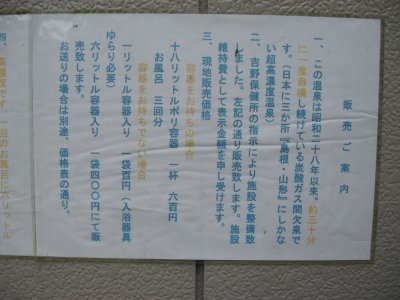 販売ご案内
一、この温泉は昭和二十八年以来。約三十分
に一度自噴し続けている炭酸ガス間欠泉で
す。（日本に三か所『島根・山形』にしかな
い超高濃度温泉）
二、吉野保健所の指示により施設を整備致
しました。左記の通り販売致します。施設
維持費として表示金額を申し受けます。
三、現地販売価格
容器をお持ちの場合
十八リットルポリ容器 一杯 六百円
お風呂 三回分
容器をお持ちでない場合
一リットル容器入り 一袋百円（入浴器具
ゆらり必要）
六リットル容器入り 一袋四〇〇円にて販
売致します。
お送りの場合は別途、価格表の通り。
四、高濃度です、一回のお風呂に六リットル